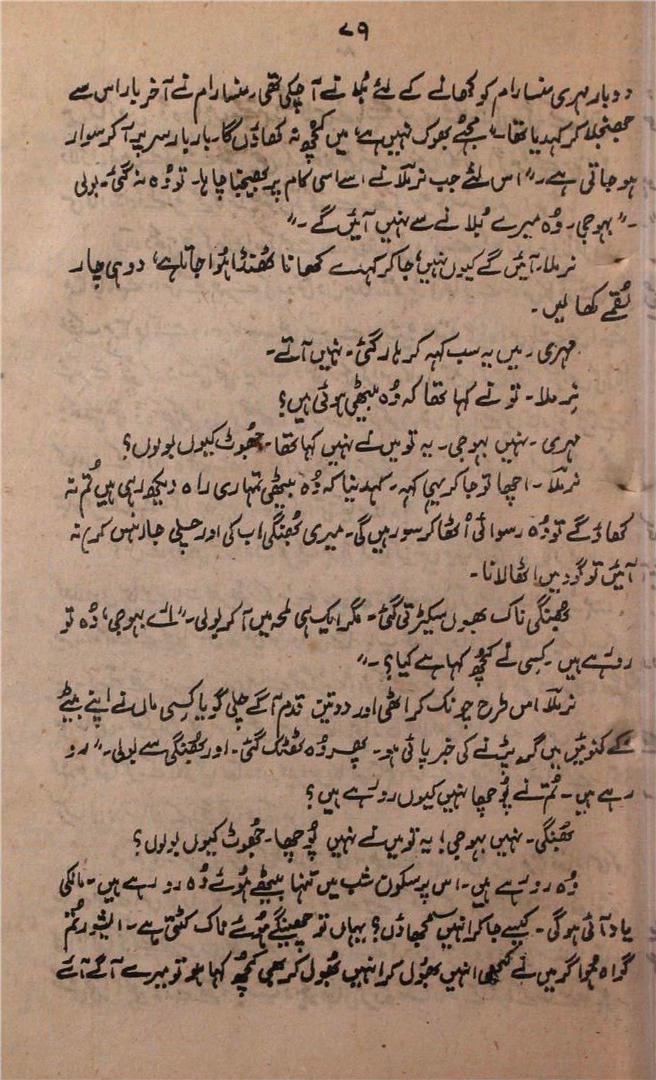 ۷۹
دوبار مہری منسا رام کو کھانے کے لئے بُلانے آ چکی تھی۔ منسا رام نے آخر بار اس سے
جھنجلا کر کہدیا تھا۔ "مجھے بھوک نہیں ہے، میں کچھ نہ کھاؤں گا۔ بار بار سر پر آ کر سوار
ہو جاتی ہے۔" اس لئے جب نرملا نے اسے اسی کام پر بھیجنا چاہا۔ تو وُہ نہ گئی۔ بولی
۔" بہو جی۔ وُہ میرے بُلانے سے نہیں آئیں گے۔"
نرملا۔ آئیں گے کیوں نہیں؛ جا کر کہدے کھانا ٹھنڈا ہُوا جاتا ہے، دو ہی چار
لُقمے کھا لیں۔
مہری۔ میں یہ سب کہہ کر ہار گئی۔ نہیں آتے۔
نِرملا۔ تو نے کہا تھا کہ وُہ بیٹھی ہوئی ہیں؟
مہری۔ نہیں بہو جی۔ یہ تو میں نے نہیں کہا تھا۔ جھوٹ کیوں بولوں؟
نرملا۔ اچھا تو جا کر یہی کہہ۔ کہدینا کہ وُہ بیٹھی تمہاری راہ دیکھ رہی ہیں تُم نہ
کھاؤ گے تو وُہ رسوائی اُٹھا کر سو رہیں گی۔ میری بُھنگی اب کی اور چلی جا۔ ہنس کر نہ
آئیں تو گود میں اٹھا لانا۔
بُھنگی ناک بھوں سیکڑتی گئی۔ مگر ایک ہی لمحہ میں آ کر بولی۔ "اے بہو جی، وُہ تو
رو رہے ہیں۔ کسی نے کچھ کہا ہے کیا؟۔"
نرملا اس طرح چونک کر اٹھی اور دو تین قدم آگے چلی گویا کِسی ماں نے اپنے بیٹے
کے کنوئیں میں گر پڑنے کی خبر پائی ہو۔ پھر وُہ ٹھٹک گئی۔ اور بُھنگی سے بولی۔ "رو
رہے ہیں۔ تُم نے پُوچھا نہیں کیوں رو رہے ہیں؟
بُھنگی۔ نہیں بہو جی! یہ تو میں نے نہیں پُوچھا۔ جُھوٹ کیوں بولوں؟
وُہ رو رہے ہیں۔ اس پر سکون شب میں تنہا بیٹھے ہُوئے وُہ رو رہے ہیں۔ ماں کی
یاد آئی ہو گی۔ کیسے جا کر انہیں سمجھاؤں؟ یہاں تو چھینکے ہُوئے ناک کٹتی ہے۔ ایشور تُم
گواہ ہو اگر میں نے کبھی انہیں بُھول کر بھی کچُھ کہا ہو تو میرے آگے آئے